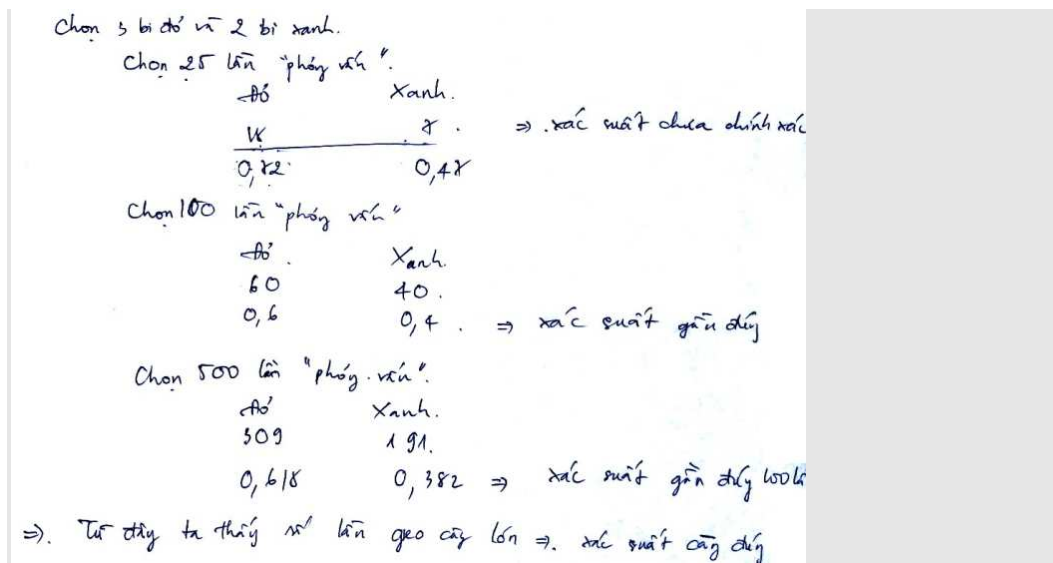 Chọn 3 bi đỏ và 2 bi xanh.
Chọn 25 lần "phỏng vấn".
Đỏ Xanh.
⇒ xác suất chưa chính xác
Chọn 100 lần "phỏng vấn"
Đỏ. Xanh.
60 40.
0,6 0,4. ⇒ xác suất gần đúng
Chọn 500 lần "phỏng vấn".
Đỏ Xanh.
309 191.
0,618 0,382 ⇒ xác suất gần đúng
⇒). Từ đây ta thấy số lần gieo càng lớn ⇒. xác suất càng đúng